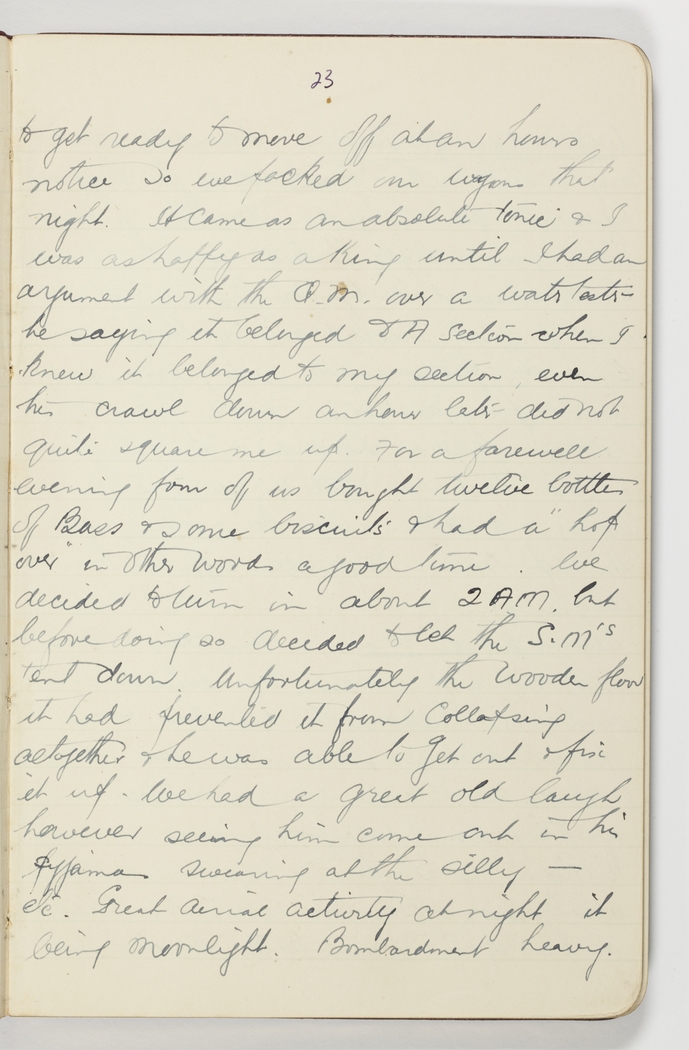 23
to get ready to move off at an hours
notice so we packed our wagons that
night. It came as an absolute tonic & I
was as happy as a King until I had an
argument with the Q.M. over a water
he saying it belonged to A section when I
knew it belonged to my section, even
his crawl down an hour later did not
quite square me up. For a farewell
evening four of us bought twelve bottles
of Bass & some biscuits & had a "hop
over" in other words a good time. We
decided to turn in about 2 AM. but
before doing so decided to let the S.M's
tent down. Unfortunately the wooden floor
it had prevented it from collapsing
altogether & he was able to get out & fix
it up. We had a great old laugh
however seeing him come out in his
pyjamas swearing at the silly —
etc. Great aerial activity at night it
being moonlight. Bombardment heavy.